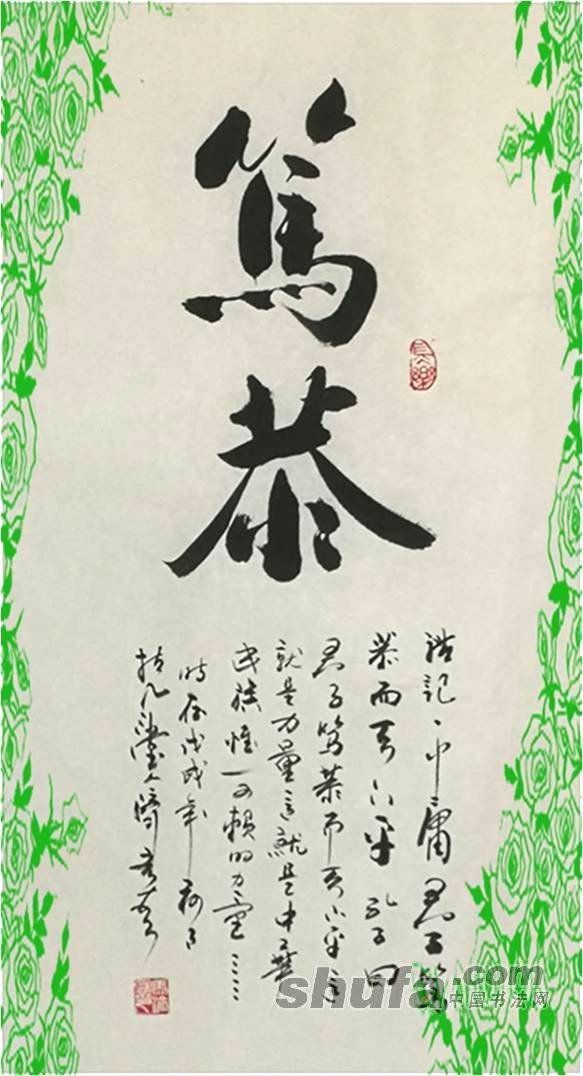 篤
恭
中庸 君子篤
恭而天下平 孔子曰
君子篤恭而天下平 这
就是力量这就是中華
民族惟一可赖的力量……
时在戊戌年
shufa.com
中国书法网